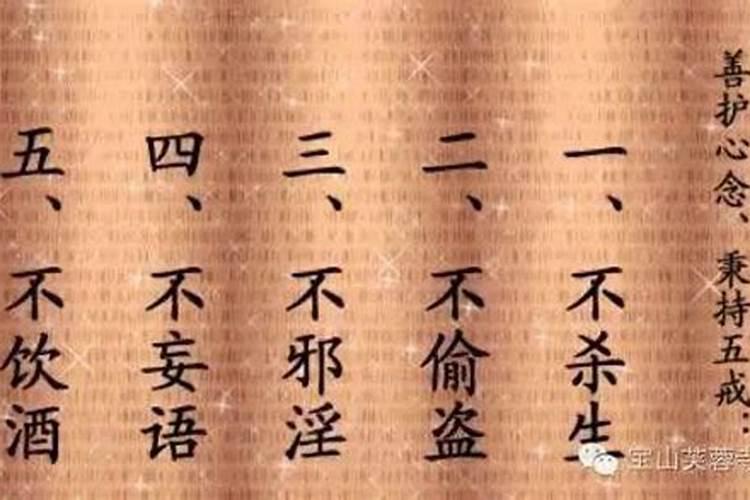 善护心念、秉持五戒
一、不杀生
二、不偷盗
三、不邪淫
四、不妄语
五、不饮酒
宝山芙蓉寺